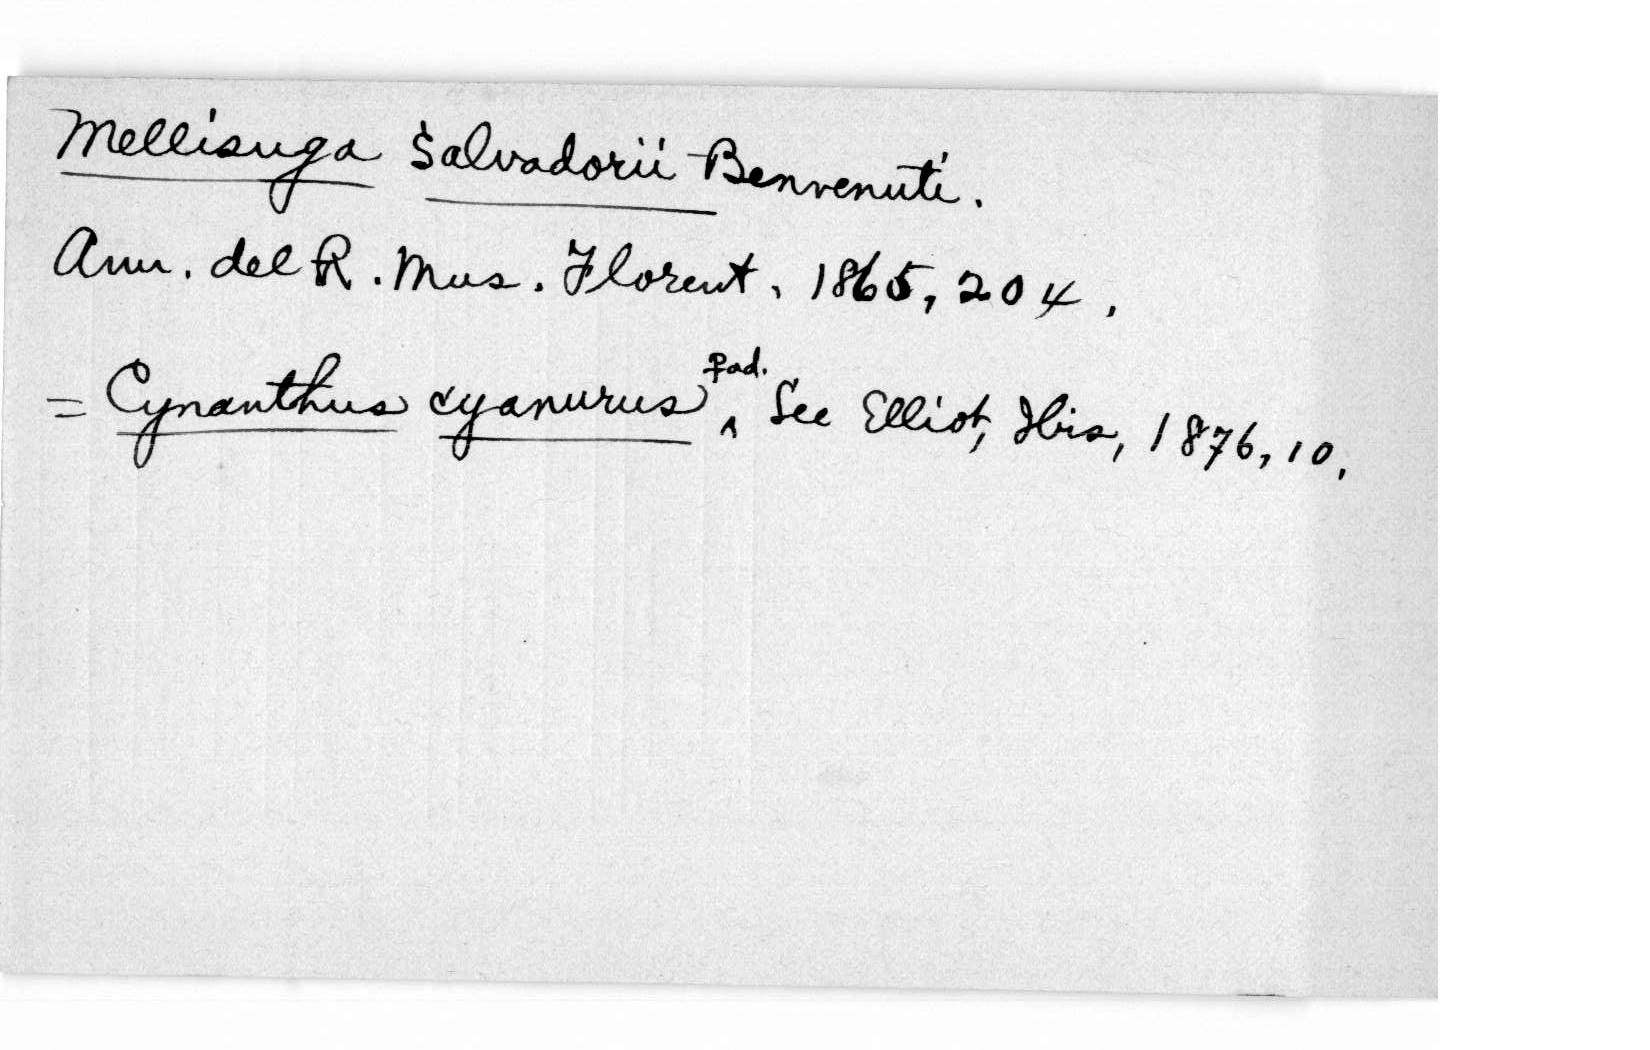 Mellisuga Salvadorii Benvenuti.
Ann. del R. Mus. Florent, 1865, 204.
= Cynanthus cyanurus ♀ad. See Elliot, Ibis, 1876, 10.